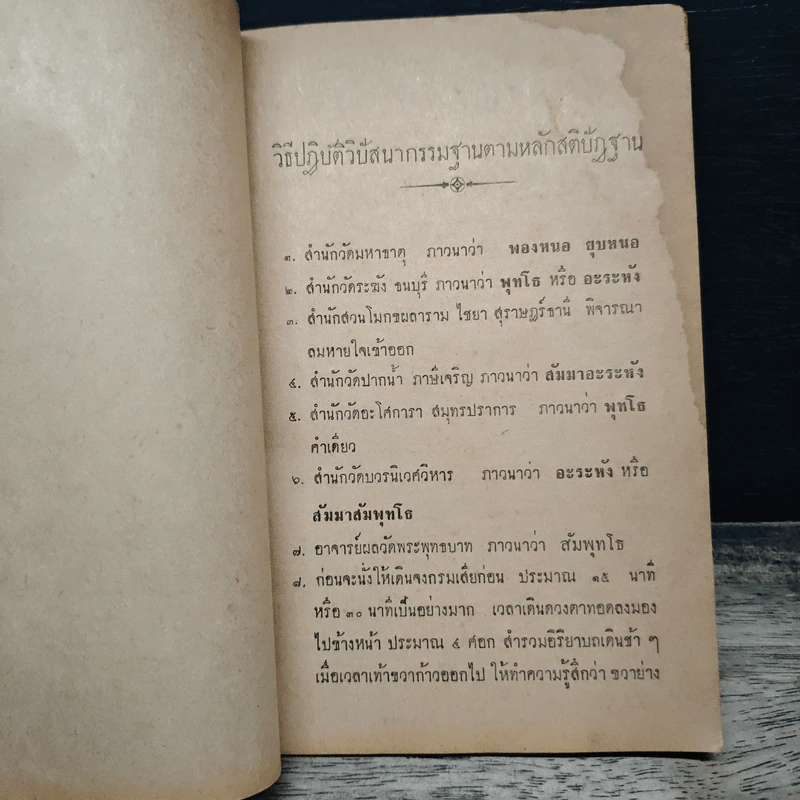 วิธีปฏิบัติวิปัสนากรรมฐานตามหลักสติปัฏฐาน
๑. สำนักวัดมหาธาตุ ภาวนาว่า พองหนอ ยุบหนอ
๒. สำนักวัดระฆัง ธนบุรี ภาวนาว่า พุทโธ หรือ อะระหัง
๓. สำนักสวนโมกขผลาราม ไชยา สุราษฎร์ธานี พิจารณา
ลมหายใจเข้าออก
๔. สำนักวัดปากน้ำ ภาษีเจริญ ภาวนาว่า สัมมาอะระหัง
๕. สำนักวัดอะโศการา สมุทรปราการ ภาวนาว่า พุทโธ
คำเดียว
๖. สำนักวัดบวรนิเวศวิหาร ภาวนาว่า อะระหัง หรือ
สัมมาสัมพุทโธ
๗. อาจารย์ผลวัดพระพุทธบาท ภาวนาว่า สัมพุทโธ
๘. ก่อนจะนั่งให้เดินจงกรมเสียก่อน ประมาณ ๑๕ นาที
หรือ ๓๐ นาทีเป็นอย่างมาก เวลาเดินดวงตาทอดลงมอง
ไปข้างหน้า ประมาณ ๔ ศอก สำรวมอิริยาบถเดินช้า ๆ
เมื่อเวลาเท้าขวาก้าวออกไป ให้ทำความรู้สึกว่า ขวาย่าง